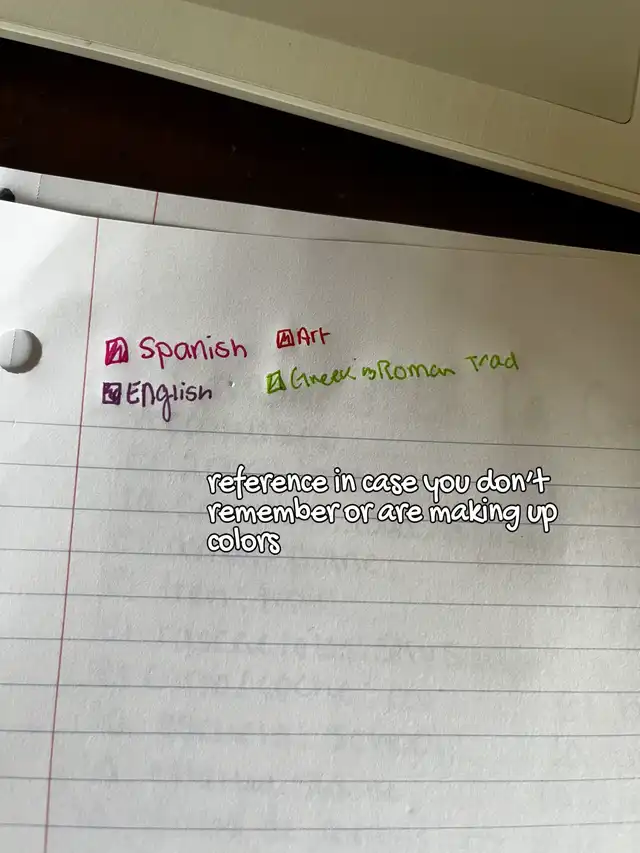 Spanish Art
English Greek & Roman Trad
reference in case you don't
remember or are making up
colors